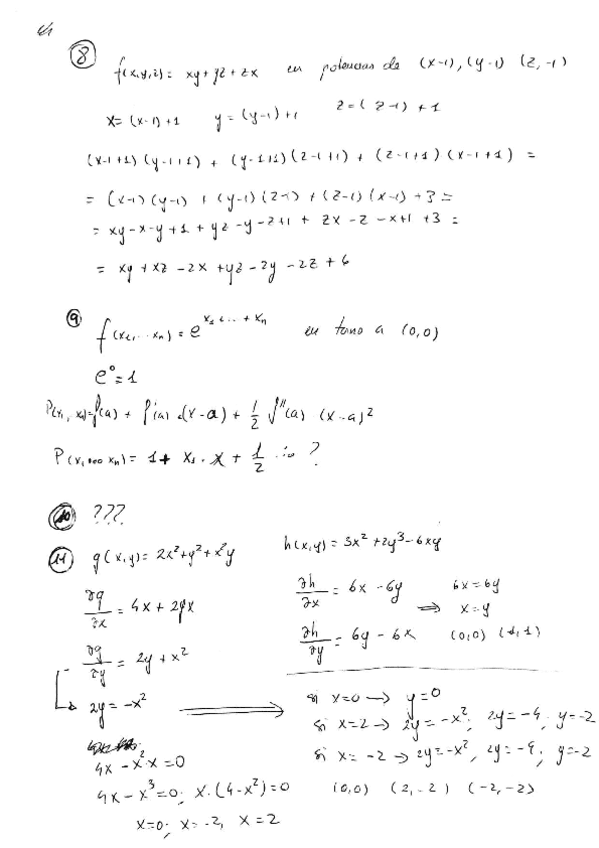 ⑧ f(x,y,z) = xy + yz + zx en potencias de (x-1), (y-1) (z-1)
x = (x-1)+1 y = (y-1)+1 z = (z-1)+1
(x-1+1)(y-1+1) + (y-1+1)(z-1+1) + (z-1+1)(x-1+1) =
= (x-1)(y-1) + (y-1)(z-1) + (z-1)(x-1) + 3 =
= xy-x-y+1 + yz-y-z+1 + zx-z-x+1 +3 =
= xy + xz - 2x + yz - 2y - 2z + 6
⑨ f(x₁,...xₙ) = e^{x₁+...+xₙ} en torno a (0,0)
e⁰=1
P(x₁, xₙ) = f(a) + f'(a).(x-a) + 1/2 f''(a) (x-a)²
P(x₁...xₙ) = 1 + x₁.x + 1/2 ... ?
⑩ ???
⑪ g(x,y) = 2x²+y²+x²y
∂g/∂x = 4x + 2yx
∂g/∂y = 2y + x²
2y = -x²
4x - x²·x = 0
4x - x³ = 0; x·(4-x²) = 0
x=0; x=-2, x=2
h(x,y) = 3x² + 2y³ - 6xy
∂h/∂x = 6x - 6y 6x = 6y
⇒ x=y
∂h/∂y = 6y - 6x (0,0) (1,1)
si x=0 → y=0
si x=2 → 2y=-x², 2y=-4; y=-2
si x=-2 → 2y=-x², 2y=-4; y=-2
(0,0) (2,-2) (-2,-2)